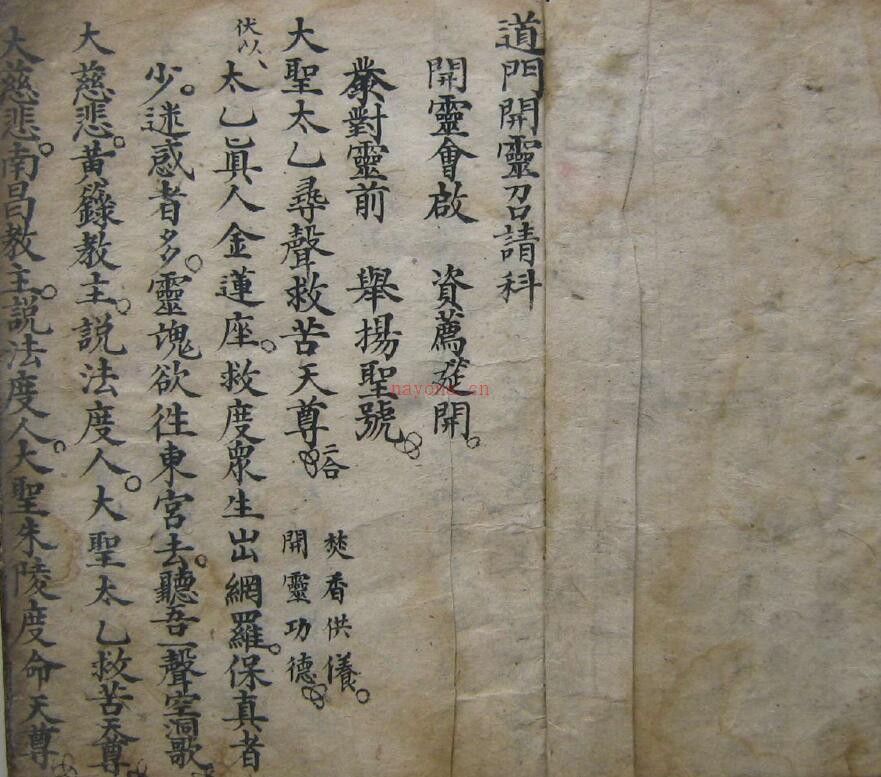 道門開靈召請科
開靈會啟 資薦筵開
眾對靈前 舉揚聖號
大聖太乙尋聲救苦天尊 二合 焚香供養 開靈功德
伏以 太乙真人金蓮座救度眾生出網羅保真者
少迷惑者多靈魂欲徃東宮去聽吾一聲空洞歌
大慈悲黃籙教主說法度人大聖太乙救苦天尊
大慈悲南昌教主說法度人大聖朱陵度命天尊
nayona.cn